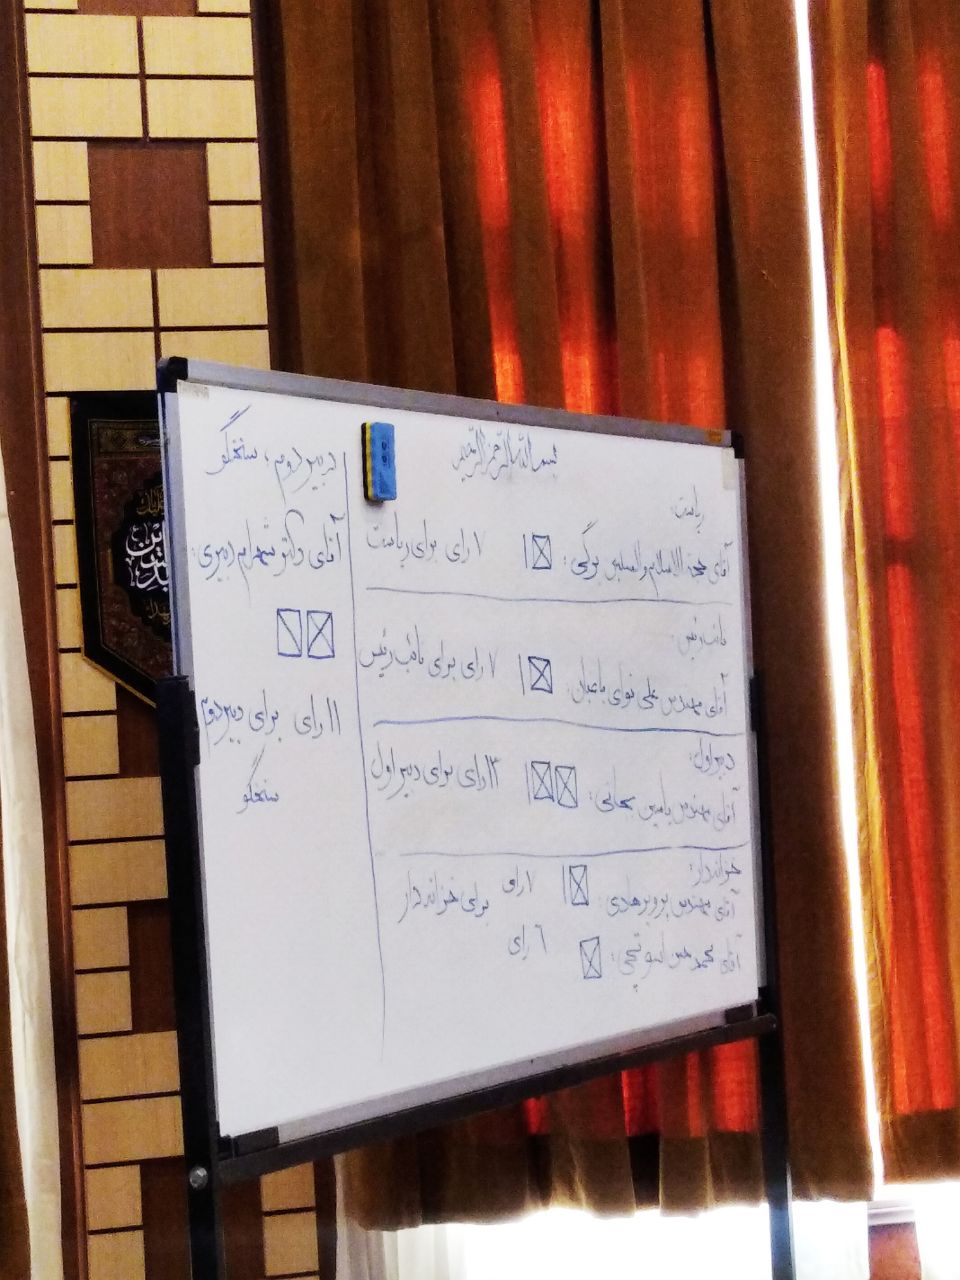 بسم الله الرحمن الرحیم
ریاست:
آقای حجة الاسلام والمسلمین برگی: ۷ رای برای ریاست
نائب رئیس:
آقای مهندس علی نوای باغبان: ۷ رای برای نائب رئیس
دبیر اول:
آقای مهندس یاسین بجانی: ۱۳ رای برای دبیر اول
خزانه‌دار:
آقای مهندس پرویز هادی: ۷ رای برای خزانه‌دار
آقای محمد حسن اسوتچی: ۶ رای
دبیر دوم، سخنگو
آقای دکتر شهرام دبیری:
۱۱ رای برای دبیر دوم
سخنگو